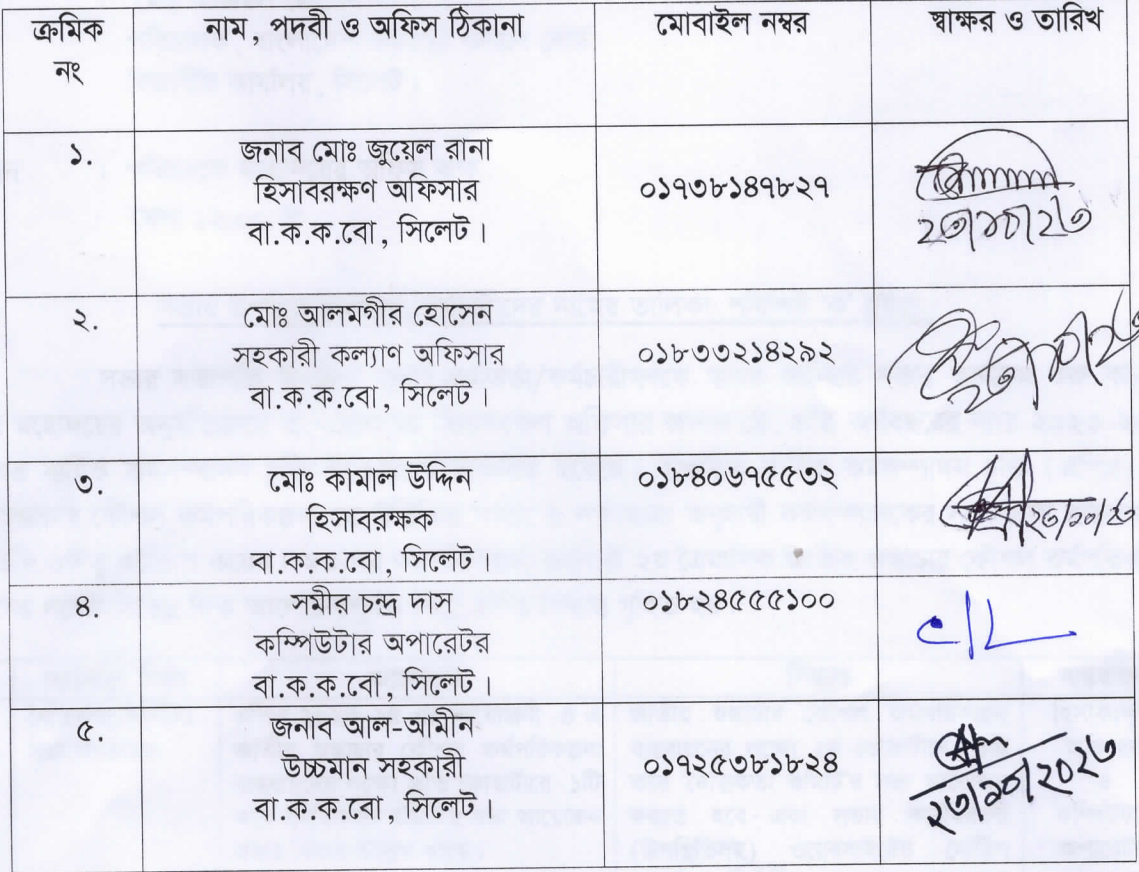 ক্রমিক নং
নাম, পদবী ও অফিস ঠিকানা
মোবাইল নম্বর
স্বাক্ষর ও তারিখ
১.
জনাব মোঃ জুয়েল রানা
হিসাবরক্ষণ অফিসার
বা.ক.ক.বো, সিলেট।
০১৭৩৮১৪৭৮২৭
২৩/১০/২৩
২.
মোঃ আলমগীর হোসেন
সহকারী কল্যাণ অফিসার
বা.ক.ক.বো, সিলেট।
০১৮৩৩২১৪২৯২
২৩/১০/২৩
৩.
মোঃ কামাল উদ্দিন
হিসাবরক্ষক
বা.ক.ক.বো, সিলেট
০১৮৪০৬৭৫৫৩২
২৩/১০/২৩
৪.
সমীর চন্দ্র দাস
কম্পিউটার অপারেটর
বা.ক.ক.বো, সিলেট।
০১৮২৪৫৫৫১০০
৫.
জনাব আল-আমীন
উচ্চমান সহকারী
বা.ক.ক.বো, সিলেট।
০১৭২৫৩৮১৮২৪
২৩/১০/২০২৩